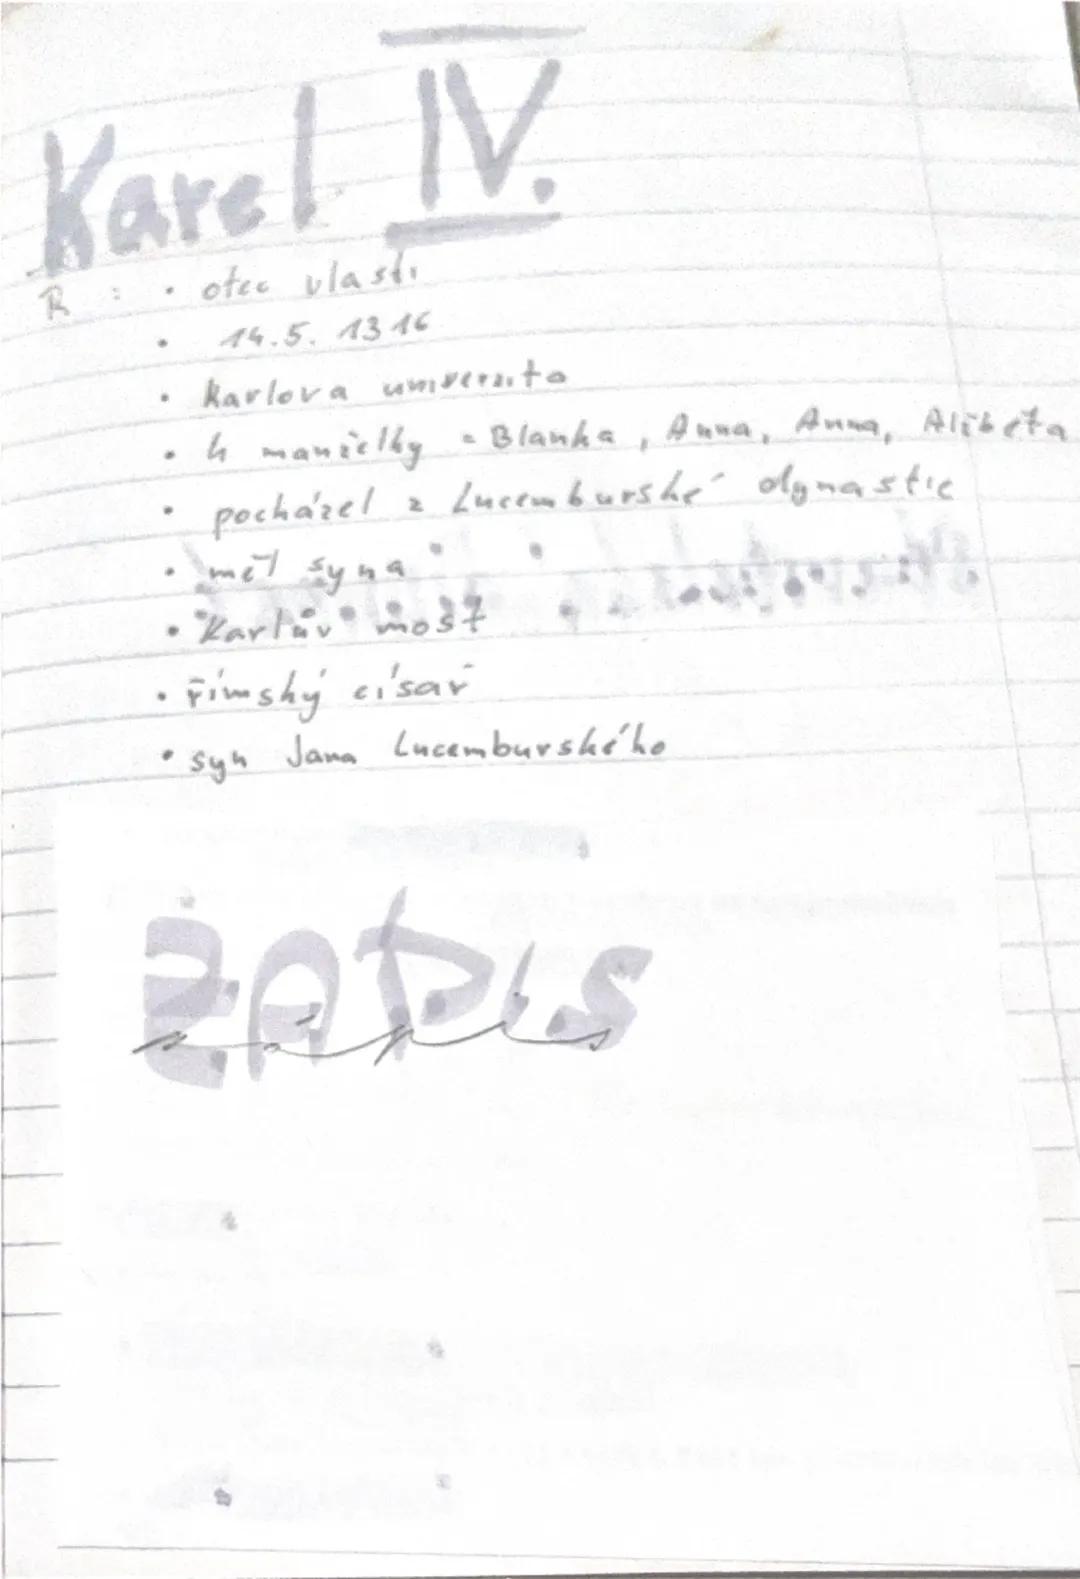 Karel IV.
R : • otec vlasti
• 14.5. 1316
• Karlova univerzita
• 4 manželky = Blanka, Anna, Anna, Alžběta
• pocházel z Lucemburské dynastie
• měl syna
• Karlův most
• římský císař
• syn Jana Lucemburského
ZÁPIS
zápis